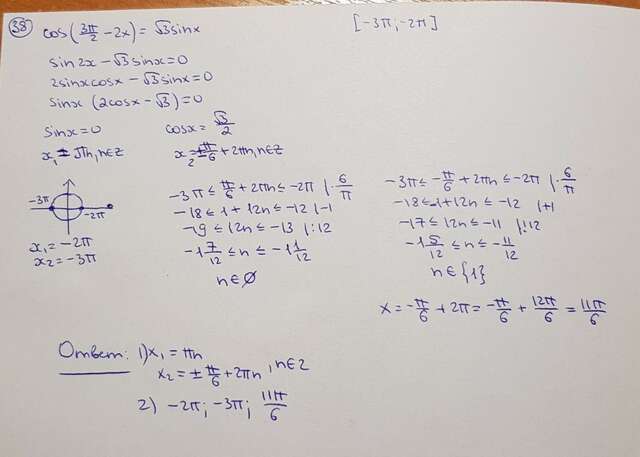 38 cos(3π/2 − 2x) = √3 sinx [−3π; −2π]
sin2x − √3 sinx = 0
2sinxcosx − √3 sinx = 0
sinx (2cosx − √3) = 0
sinx = 0 cosx = √3/2
x₁ = πn, n∈Z x₂ = ±π/6 + 2πn, n∈Z
−3π −2π
x₁ = −2π
x₂ = −3π
−3π ≤ π/6 + 2πn ≤ −2π |·6/π
−18 ≤ 1 + 12n ≤ −12 |−1
−19 ≤ 12n ≤ −13 |:12
−1 7/12 ≤ n ≤ −1 1/12
n∈∅
−3π ≤ −π/6 + 2πn ≤ −2π |·6/π
−18 ≤ −1 + 12n ≤ −12 |+1
−17 ≤ 12n ≤ −11 |:12
−1 5/12 ≤ n ≤ −11/12
n∈{1}
x = −π/6 + 2π = −π/6 + 12π/6 = 11π/6
Ответ: 1) x₁ = πn
x₂ = ±π/6 + 2πn, n∈Z
2) −2π; −3π; 11π/6